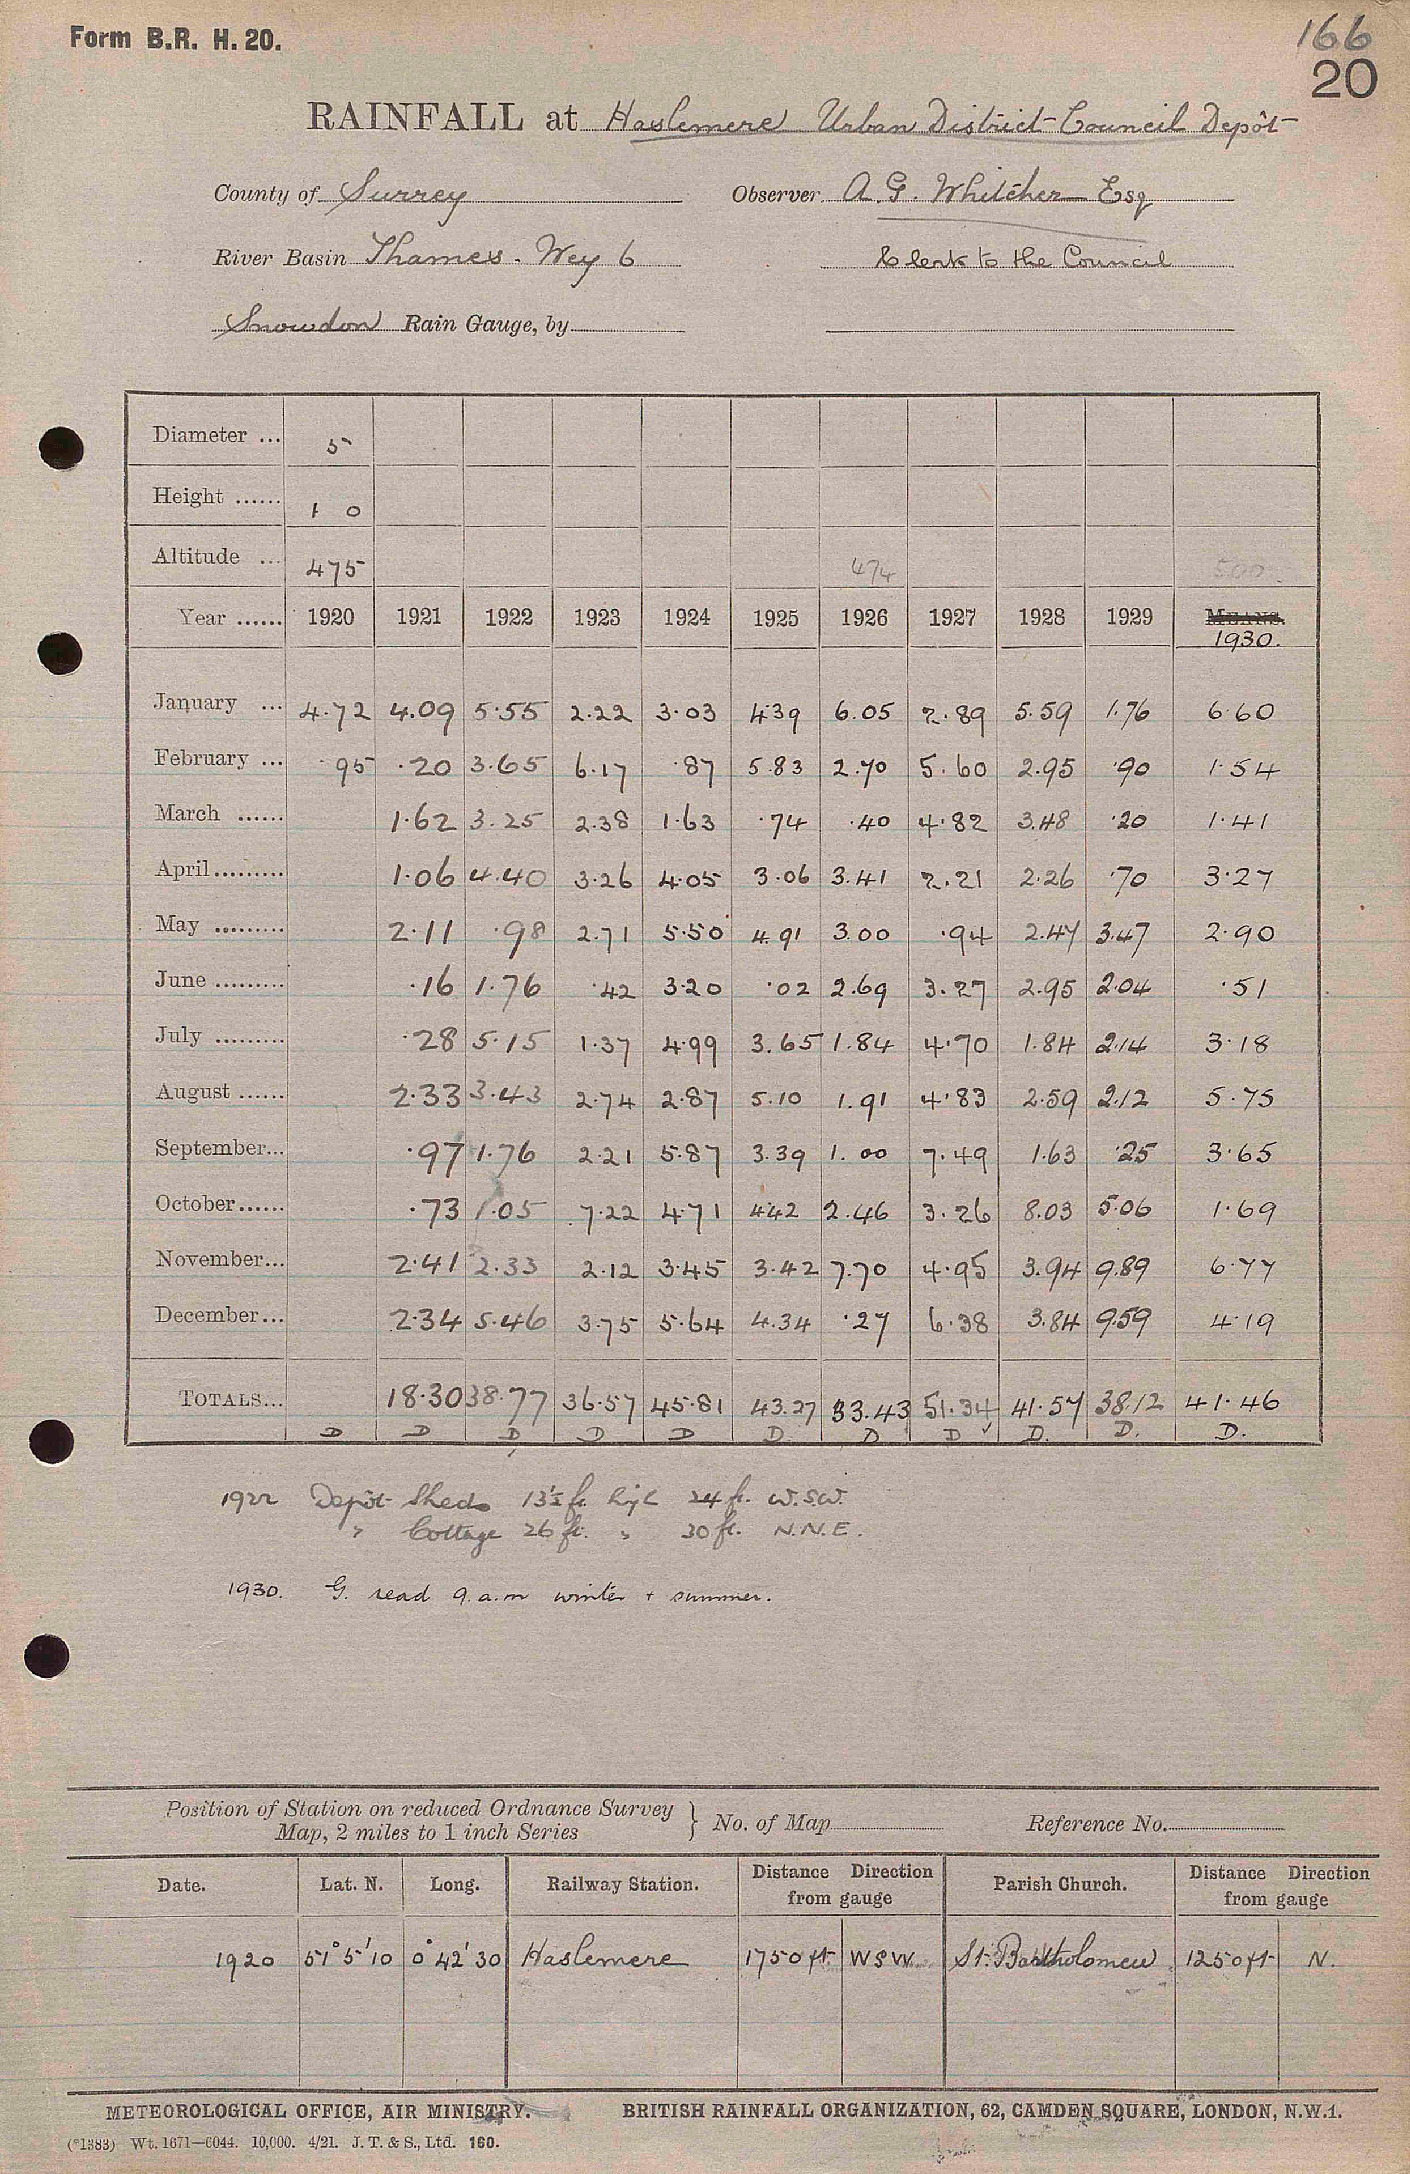 Form B.R. H. 20.
166
20
RAINFALL at Haslemere Urban District Council Depôt
County of Surrey Observer A. G. Whitcher Esq
River Basin Thames - Wey 6 Clerk to the Council
Snowdon Rain Gauge, by
Diameter ... 5
Height ...... 1 0
Altitude ... 475 474 500
Year ...... 1920 1921 1922 1923 1924 1925 1926 1927 1928 1929 MEANS.
1930.
January ... 4.72 4.09 5.55 2.22 3.03 4.39 6.05 2.89 5.59 1.76 6.60
February ... .95 .20 3.65 6.17 .87 5.83 2.70 5.60 2.95 .90 1.54
March ...... 1.62 3.25 2.38 1.63 .74 .40 4.82 3.48 .20 1.41
April ......... 1.06 4.40 3.26 4.05 3.06 3.41 2.21 2.26 .70 3.27
May ......... 2.11 .98 2.71 5.50 4.91 3.00 .94 2.47 3.47 2.90
June ......... .16 1.76 .42 3.20 .02 2.69 3.27 2.95 2.04 .51
July ......... .28 5.15 1.37 4.99 3.65 1.84 4.70 1.84 2.14 3.18
August ...... 2.33 3.43 2.74 2.87 5.10 1.91 4.83 2.59 2.12 5.75
September... .97 1.76 2.21 5.87 3.39 1.00 7.49 1.63 .25 3.65
October...... .73 1.05 7.22 4.71 4.42 2.46 3.26 8.03 5.06 1.69
November... 2.41 2.33 2.12 3.45 3.42 7.70 4.95 3.94 9.89 6.77
December... 2.34 5.46 3.75 5.64 4.34 .27 6.38 3.84 9.59 4.19
TOTALS... 18.30 38.77 36.57 45.81 43.27 33.43 51.34 41.57 38.12 41.46
D D D D D D. D D ✓ D. D. D.
1922 Depôt Sheds 13½ ft. high 24 ft. W.S.W.
" Cottage 26 ft. " 30 ft. N.N.E.
1930. G. read 9 a.m winter + summer.
Position of Station on reduced Ordnance Survey
Map, 2 miles to 1 inch Series } No. of Map Reference No.
Date. Lat. N. Long. Railway Station. Distance Direction from gauge Parish Church. Distance Direction from gauge
1920 51° 5' 10 0° 42' 30 Haslemere 1750 ft. WSW. St. Bartholomew 1250 ft N.
METEOROLOGICAL OFFICE, AIR MINISTRY. BRITISH RAINFALL ORGANIZATION, 62, CAMDEN SQUARE, LONDON, N.W.1.
(*1383) Wt. 1671—6044. 10,000. 4/21. J. T. & S., Ltd. 160.